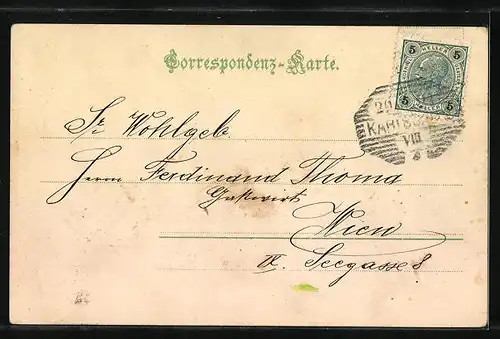 Correspondenz-Karte.
5 HELLER 5
5 HELLER 5
20
KARLSB
VIII
Sr Wohlgeb.
Herrn Ferdinand Thoma
Gastwirt
Wien
IX. Seegasse 8